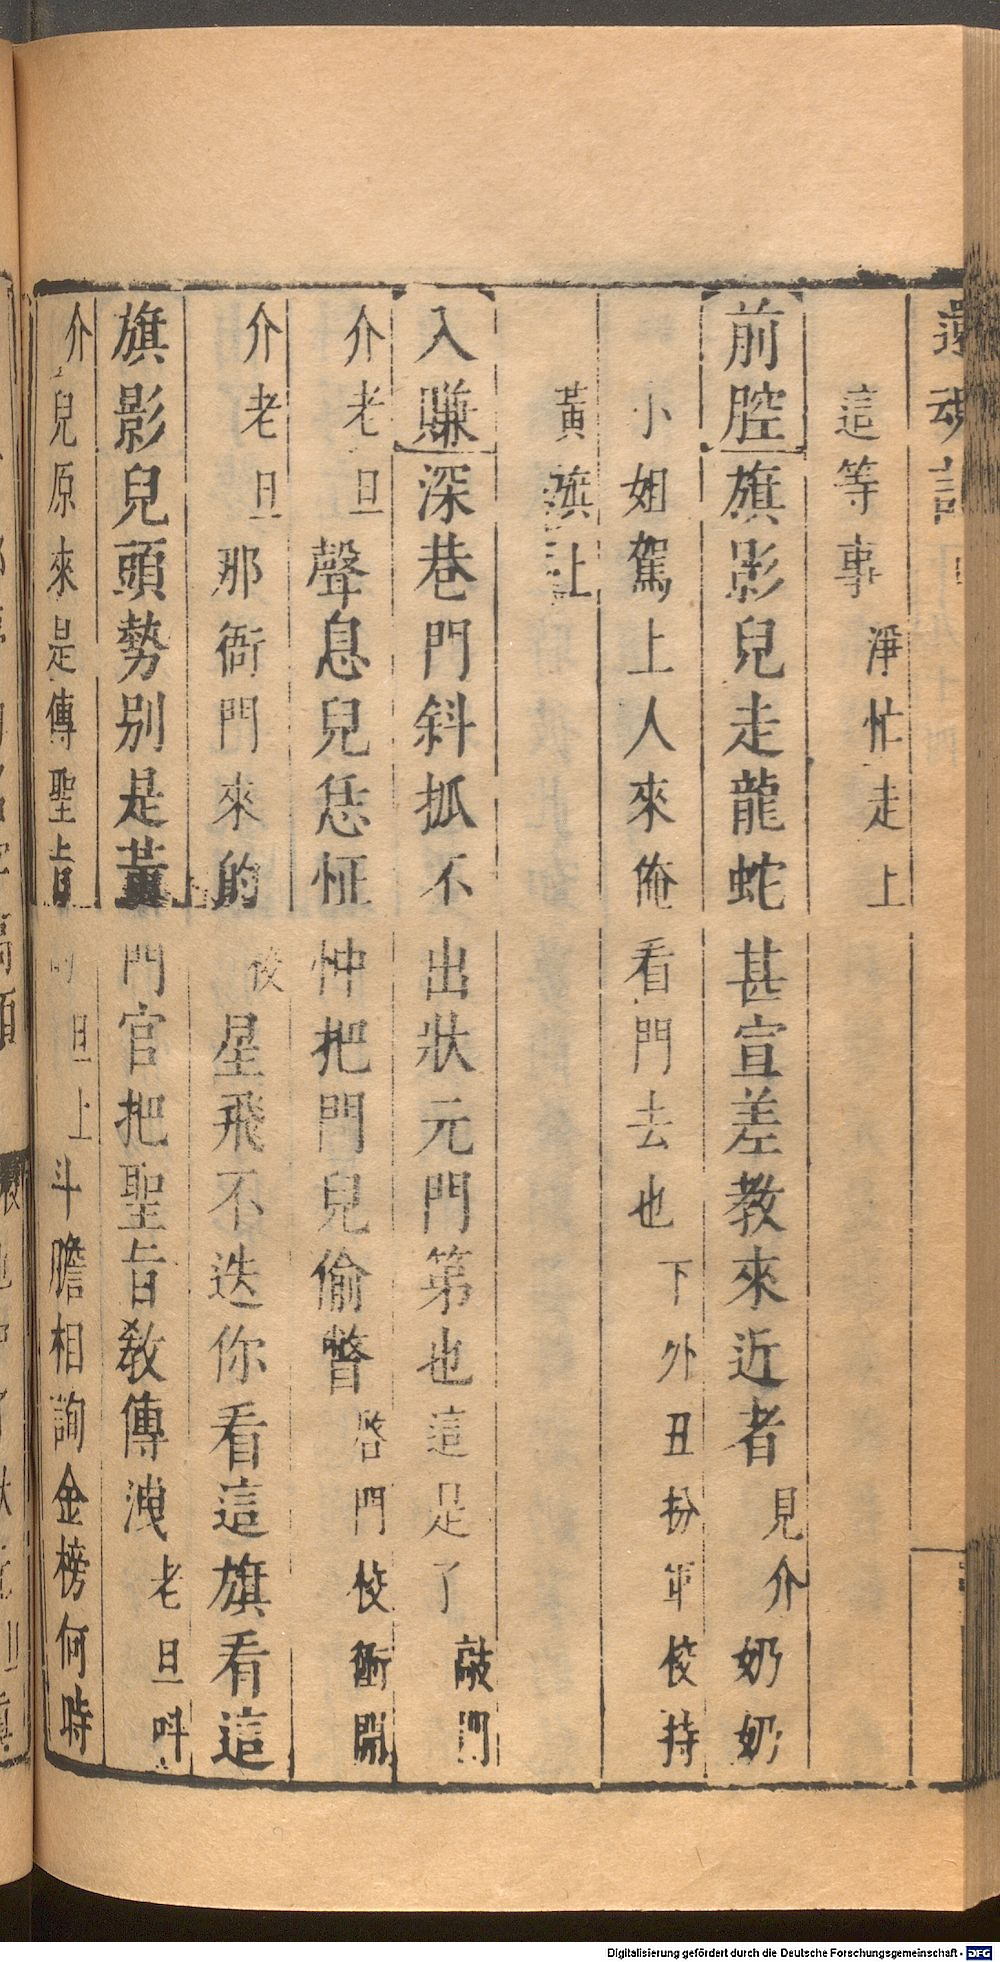 還魂記
這等事淨忙走上
前腔旗影兒走龍蛇甚宣差教來近者見介奶奶
小姐駕上人來俺看門去也下外丑扮軍校持
黃旗上
入賺深巷門斜抓不出狀元門第也這是了敲門
介老旦聲息兒恁怔忡把門兒偷瞥啓門校衝開
介老旦那衙門來的校星飛不迭你看這旗看這
旗影兒頭勢別是黃門官把聖旨教傳洩老旦呌
介兒原來是傳聖旨的旦上斗膽相詢金榜何時
Digitalisierung gefördert durch die Deutsche Forschungsgemeinschaft - DFG